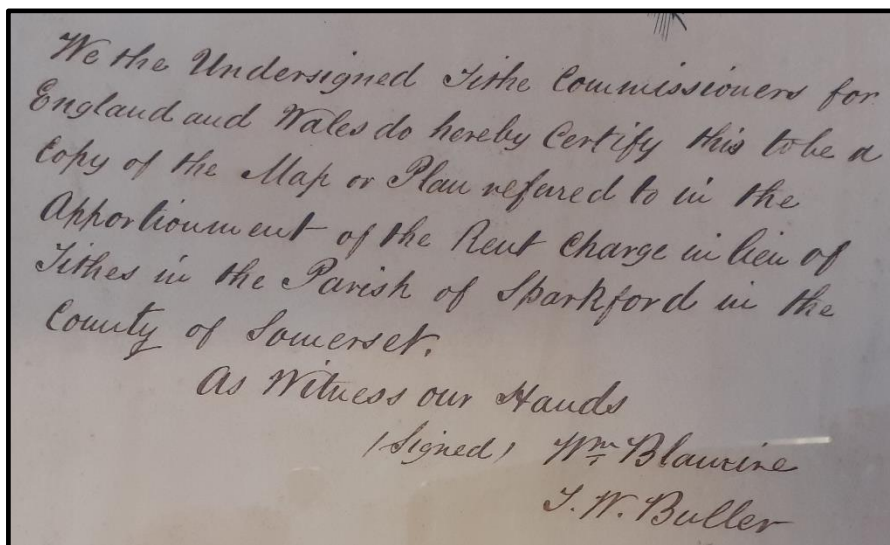 We the Undersigned Tithe Commissioners for
England and Wales do hereby Certify this to be a
Copy of the Map or Plan refered to in the
Apportionment of the Rent Charge in lieu of
Tithes in the Parish of Sparkford in the
County of Somerset.
As Witness our Hands
(Signed) Wm Blamire
T. W. Buller